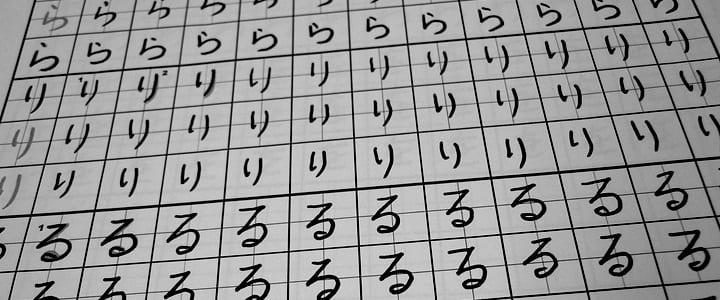 ららららら
らららららららららららら
りりりりりりりりりりりり
りりりりりりりりりりりり
りりりりりりりりりりりり
るるるるるるるるるる
るるるるるるるるるる